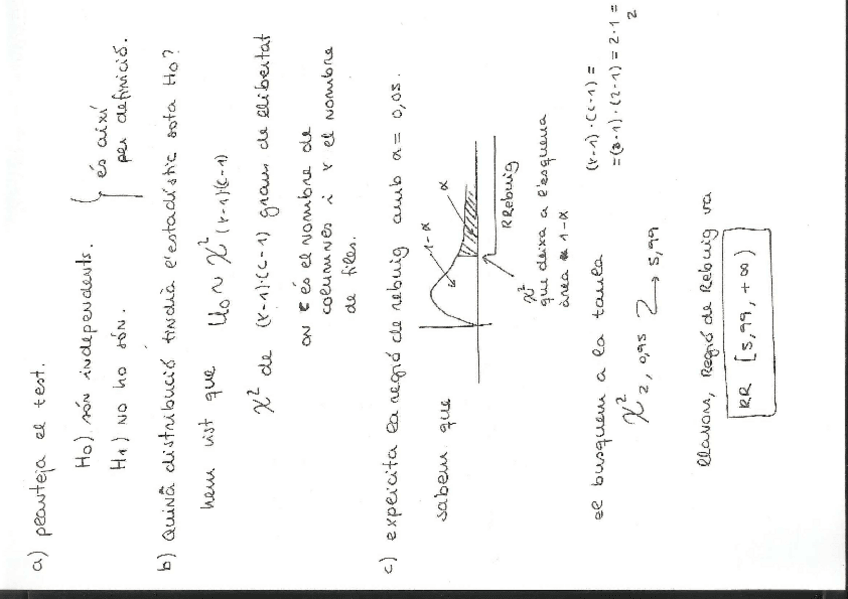 a) planteja el test.
H0) són independents.
H1) No ho són.
és així
per definició.
b) Quina distribució tindrà l'estadístic sota H0?
hem vist que U0 ~ χ² (r-1)(c-1)
χ² de (r-1)·(c-1) graus de llibertat
on c és el nombre de
columnes i r el nombre
de files.
c) explicita la regió de rebuig amb α = 0,05.
sabem que
1-α
α
RRebuig
χ²
que deixa a l'esquerra
àrea 1-α
el busquem a la taula
(r-1)·(c-1) =
=(3-1)·(2-1) = 2·1 =
2
χ² 2, 0,95 → 5,99
Llavors, Regió de Rebuig va
RR [5,99, +∞)